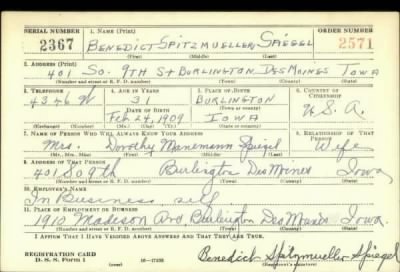 SERIAL NUMBER 1. NAME (Print) ORDER NUMBER
2367 BENEDICT SPITZMUELLER SPIEGEL 2571
(First) (Middle) (Last)
2. ADDRESS (Print)
401 SO. 9TH ST BURLINGTON DES MOINES IOWA
(Number and street or R. F. D. number) (Town) (County) (State)
3. TELEPHONE 4. AGE IN YEARS 5. PLACE OF BIRTH 6. COUNTRY OF CITIZENSHIP
4346 W 31 BURLINGTON
DATE OF BIRTH
Feb 24, 1909 IOWA U.S.A.
(Exchange) (Number) (Mo.) (Day) (Yr.) (State or country)
7. NAME OF PERSON WHO WILL ALWAYS KNOW YOUR ADDRESS 8. RELATIONSHIP OF THAT PERSON
Mrs. Dorothy Manemann Spiegel Wife
(Mr., Mrs., Miss) (First) (Middle) (Last)
9. ADDRESS OF THAT PERSON
401 So 9th Burlington Des Moines Iowa
(Number and street or R. F. D. number) (Town) (County) (State)
10. EMPLOYER'S NAME
In Business self
11. PLACE OF EMPLOYMENT OR BUSINESS
1910 Madison Ave, Burlington Des Moines Iowa
(Number and street or R. F. D. number) (Town) (County) (State)
I AFFIRM THAT I HAVE VERIFIED ABOVE ANSWERS AND THAT THEY ARE TRUE.
REGISTRATION CARD
D. S. S. Form 1 (over) 16—17105 Benedict Spitzmueller Spiegel